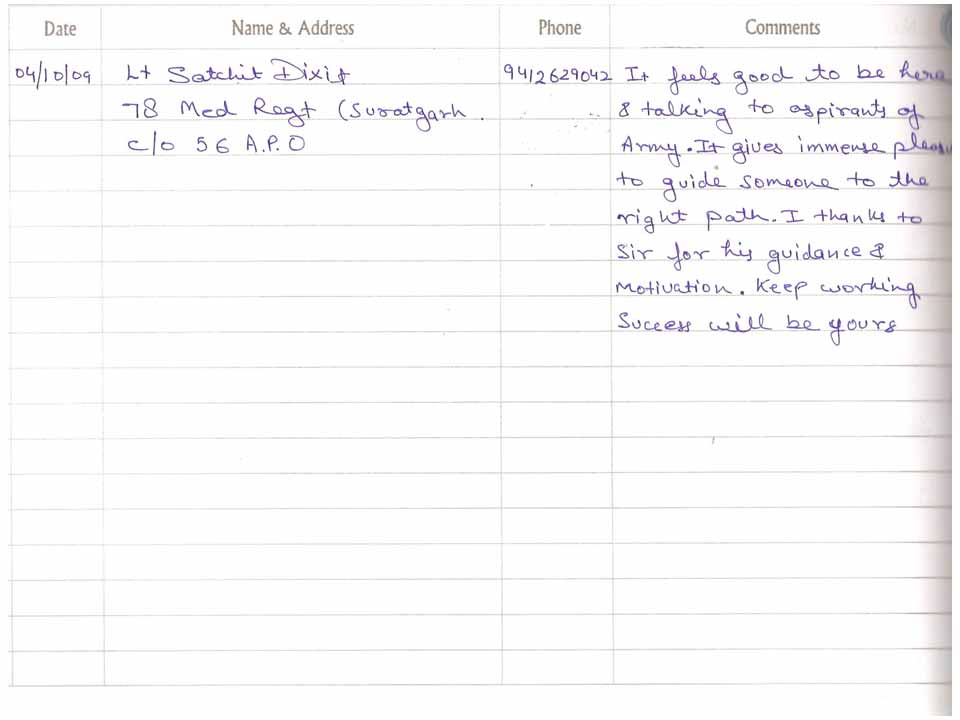 Date Name & Address Phone Comments
04/10/09 Lt Satchit Dixit 9412629042 It feels good to be here
78 Med Regt (Suratgarh. & talking to aspirants of
c/o 56 A.P.O Army. It gives immense
to guide someone to the
right path. I thanks to
Sir for his guidance &
Motivation. Keep working
Success will be yours